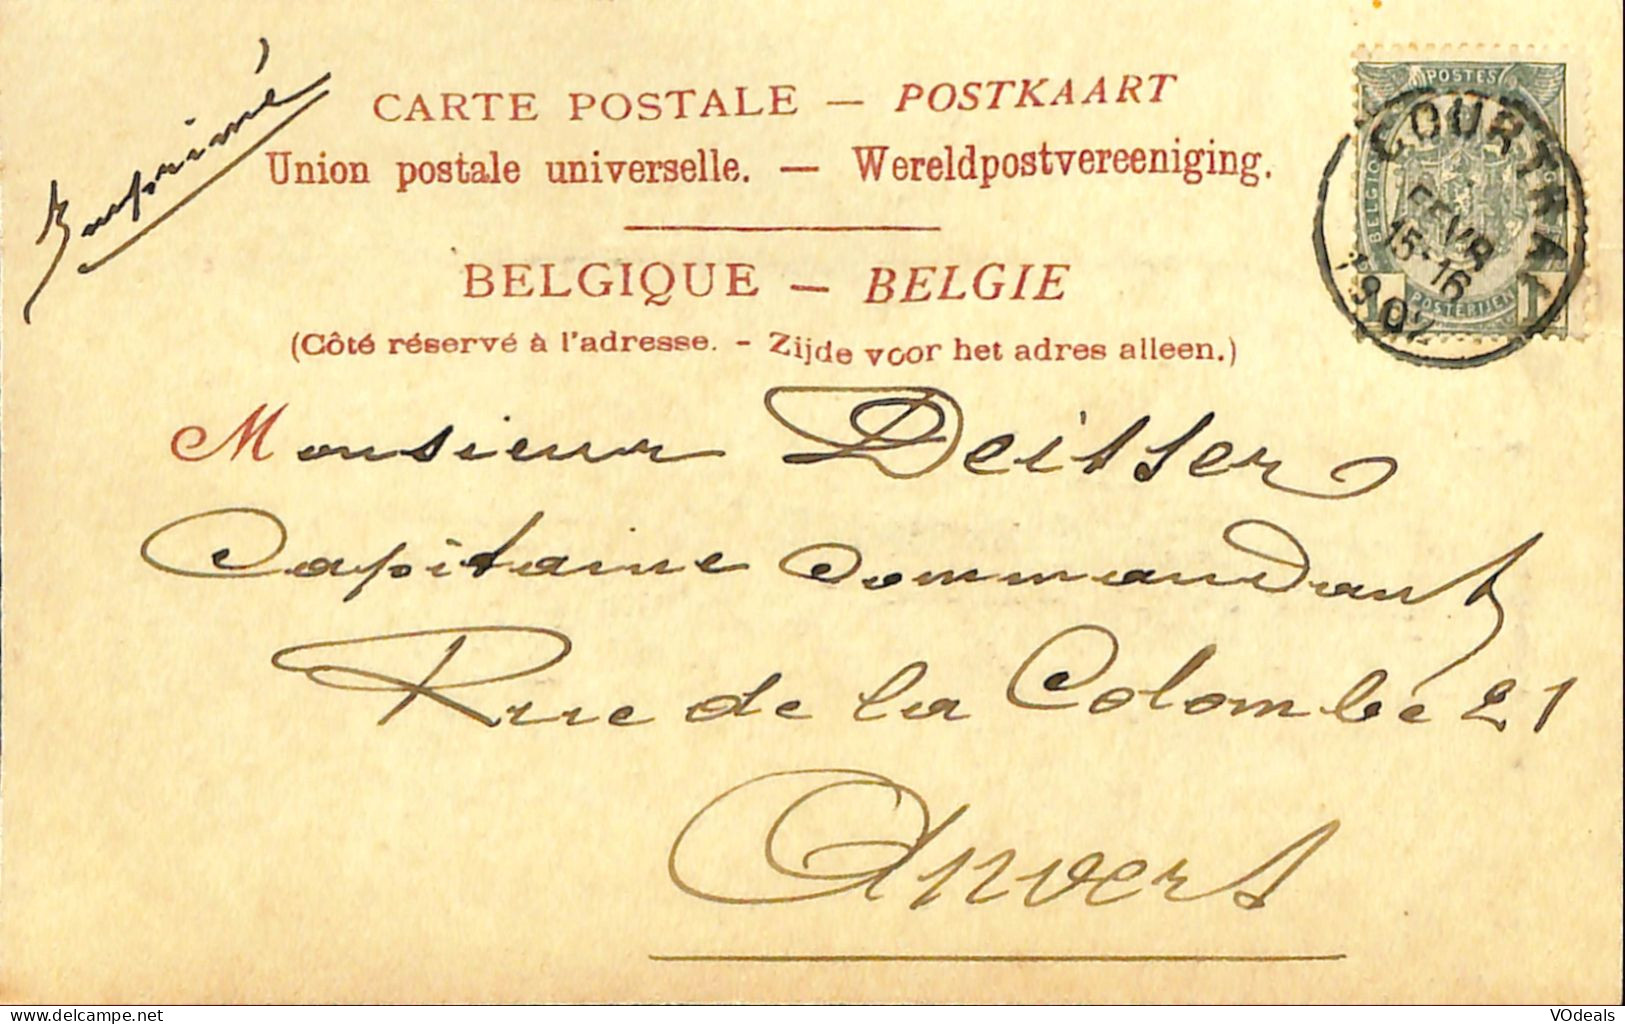 Imprimé
CARTE POSTALE — POSTKAART
Union postale universelle. — Wereldpostvereeniging.
BELGIQUE — BELGIE
(Côté réservé à l'adresse. - Zijde voor het adres alleen.)
POSTES
BELGIQUE
POSTERIJEN
COURTRAI
FEVR
15-16
1902
Monsieur Deisser
Capitaine Commandant
Rue de la Colombe 21
Anvers
delcampe.net
VOdeals